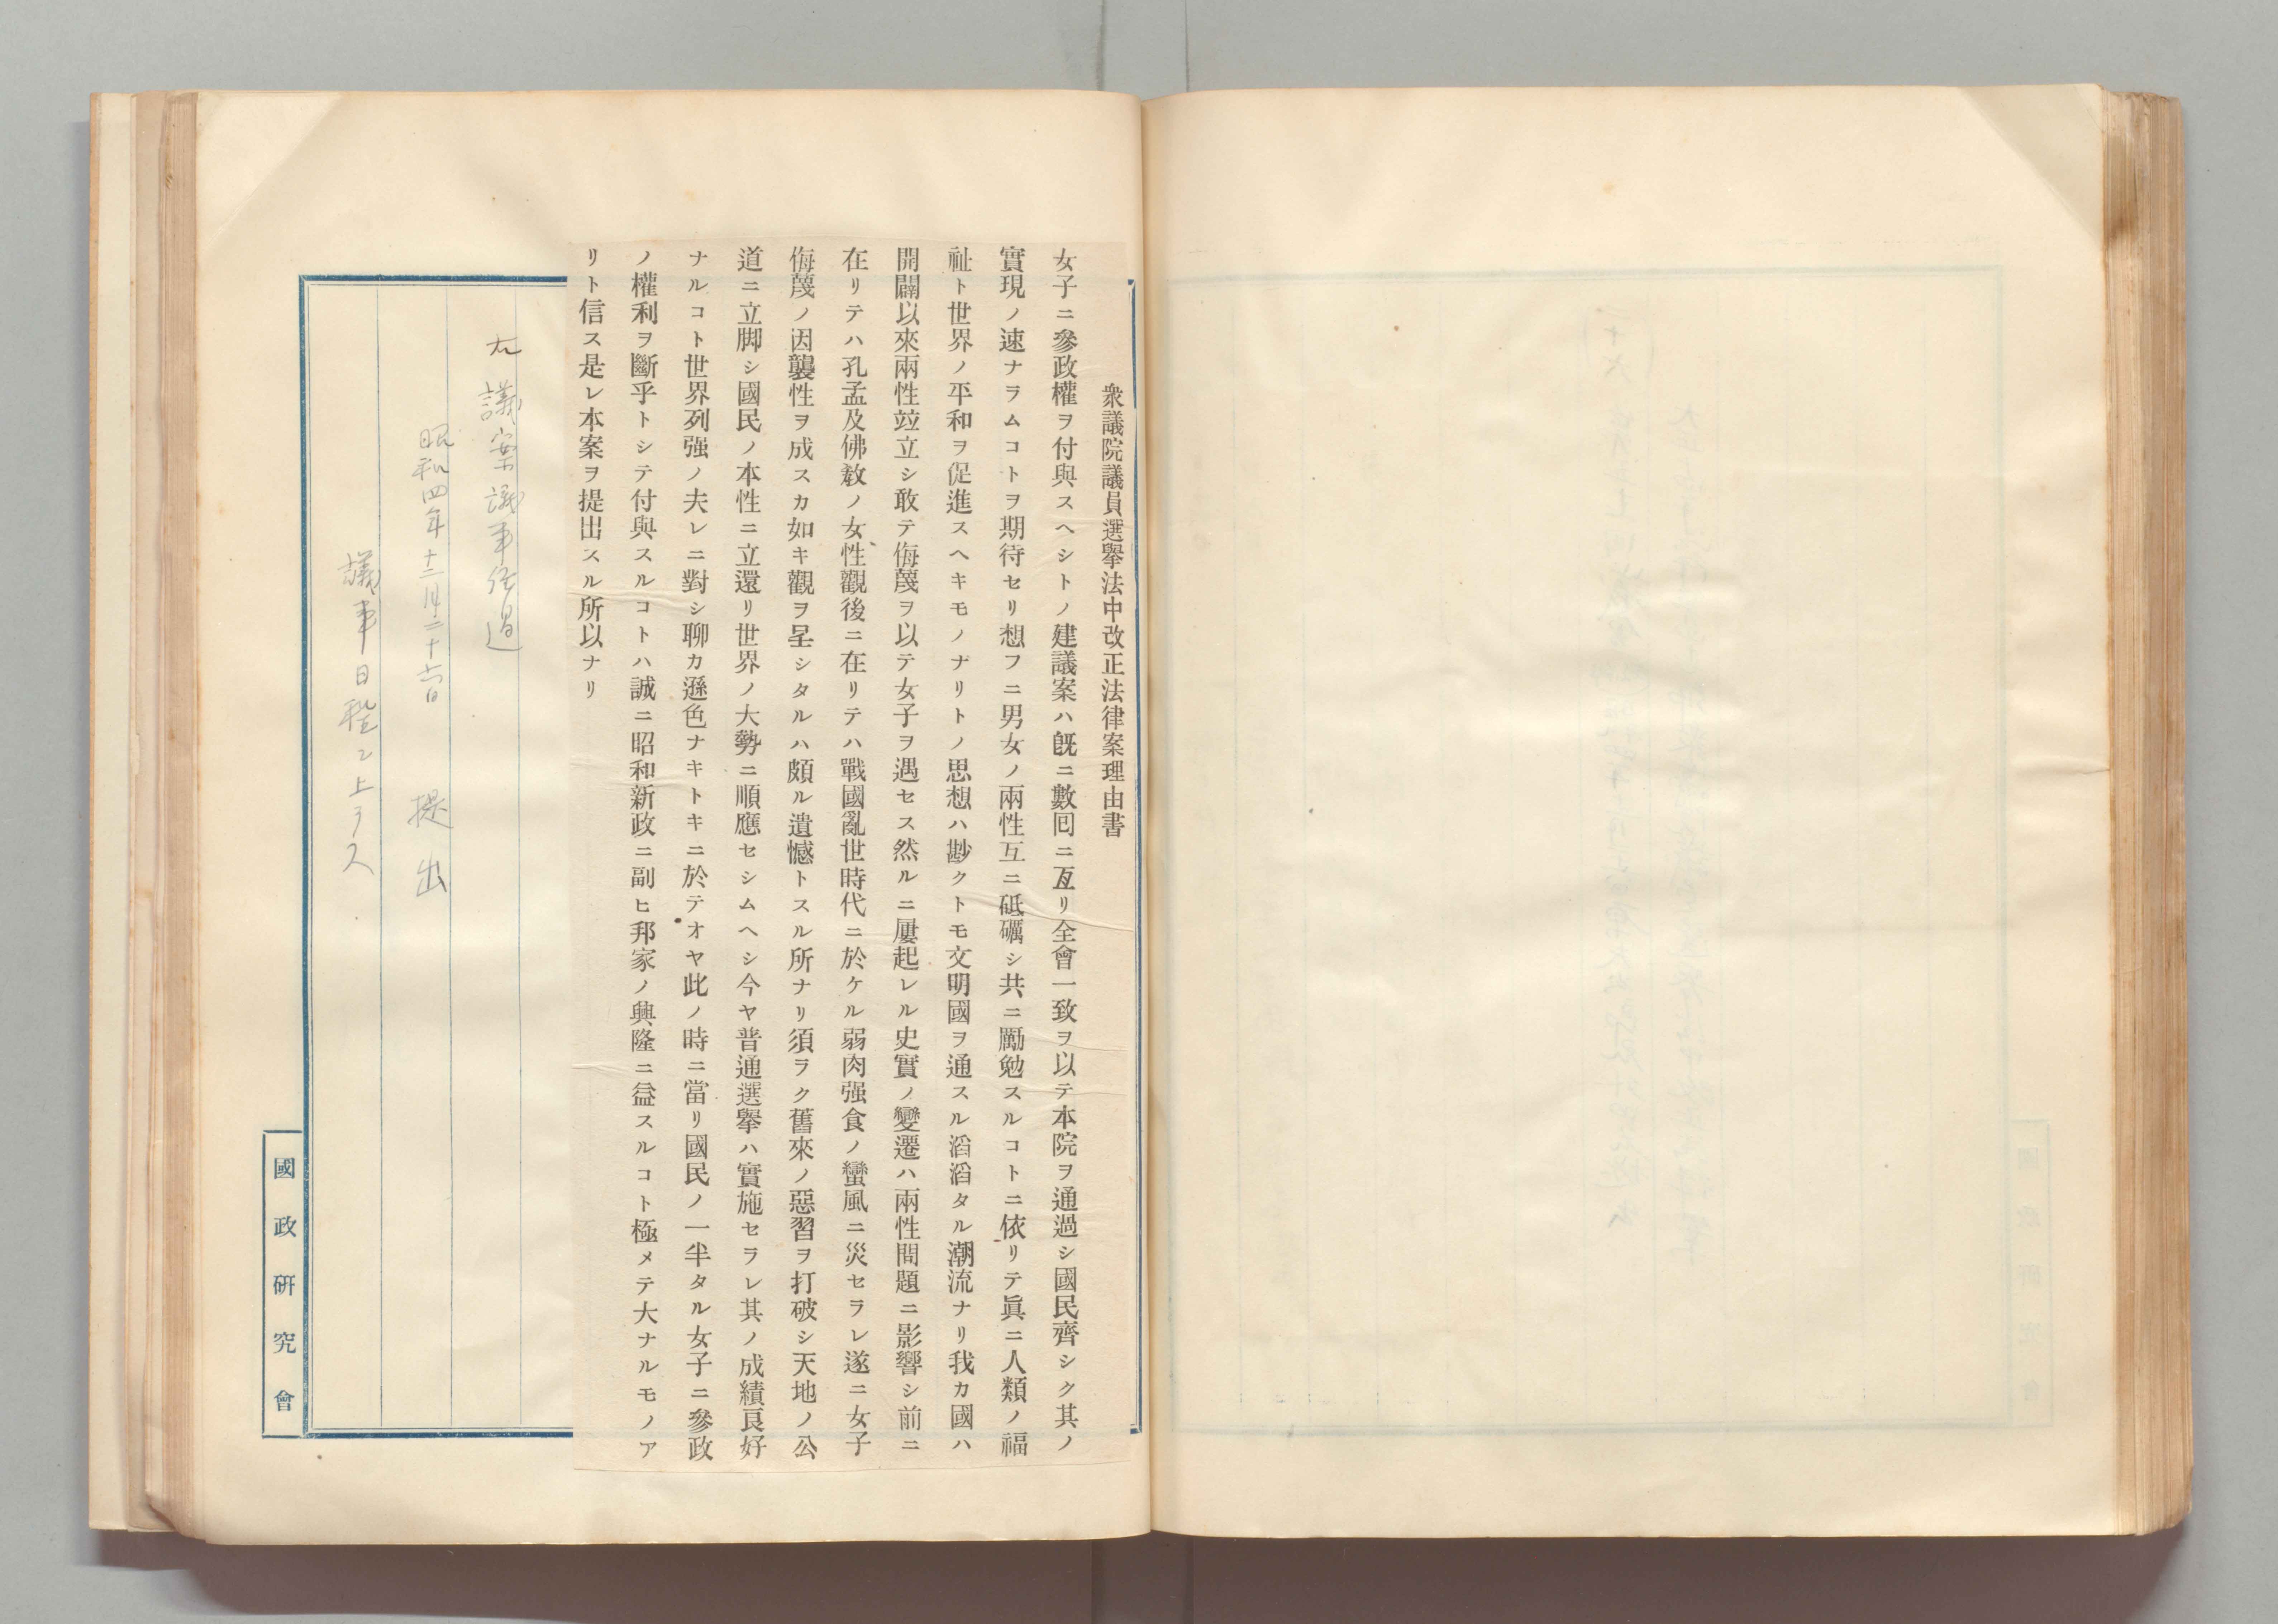 衆議院議員選擧法中改正法律案理由書
女子ニ參政權ヲ付與スヘシトノ建議案ハ旣ニ數囘ニ亙リ全會一致ヲ以テ本院ヲ通過シ國民齊シク其ノ
實現ノ速ナラムコトヲ期待セリ想フニ男女ノ兩性互ニ砥礪シ共ニ勵勉スルコトニ依リテ眞ニ人類ノ福
祉ト世界ノ平和ヲ促進スヘキモノナリトノ思想ハ尠クトモ文明國ヲ通スル滔滔タル潮流ナリ我カ國ハ
開闢以來兩性竝立シ敢テ侮蔑ヲ以テ女子ヲ遇セス然ルニ屢起レル史實ノ變遷ハ兩性問題ニ影響シ前ニ
在リテハ孔孟及佛敎ノ女性觀後ニ在リテハ戰國亂世時代ニ於ケル弱肉强食ノ蠻風ニ災セラレ遂ニ女子
侮蔑ノ因襲性ヲ成スカ如キ觀ヲ呈シタルハ頗ル遺憾トスル所ナリ須ラク舊來ノ惡習ヲ打破シ天地ノ公
道ニ立脚シ國民ノ本性ニ立還リ世界ノ大勢ニ順應セシムヘシ今ヤ普通選擧ハ實施セラレ其ノ成績良好
ナルコト世界列强ノ夫レニ對シ聊カ遜色ナキトキニ於テオヤ此ノ時ニ當リ國民ノ一半タル女子ニ參政
ノ權利ヲ斷乎トシテ付與スルコトハ誠ニ昭和新政ニ副ヒ邦家ノ興隆ニ益スルコト極メテ大ナルモノア
リト信ス是レ本案ヲ提出スル所以ナリ
右議案議事經過
昭和四年十二月二十六日 提出
議事日程ニ上ラス
國政研究會